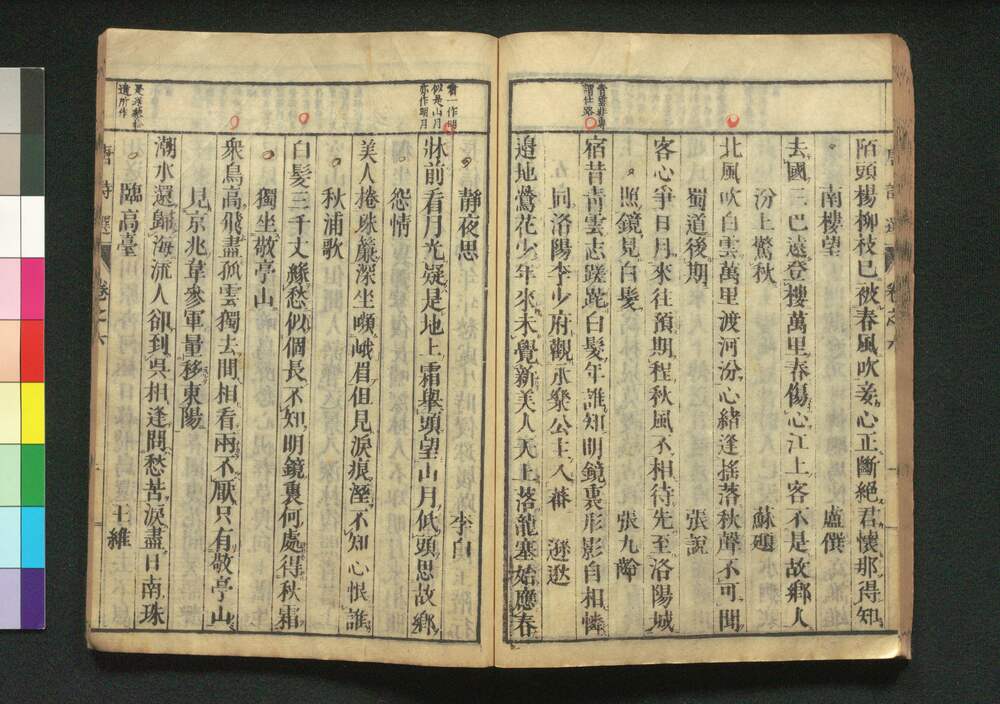 陌頭楊柳枝已被春風吹妾心正斷絕君懷那得知
南樓望 盧僎
去國三巴遠登樓萬里春傷心江上客不是故鄉人
汾上驚秋 蘇頲
北風吹白雲萬里渡河汾心緒逢搖落秋聲不可聞
蜀道後期 張說
客心爭日月來往預期程秋風不相待先至洛陽城
照鏡見白髮 張九齡
宿昔青雲志蹉跎白髮年誰知明鏡裏形影自相憐
同洛陽李少府觀永樂公主入蕃 遜逖
邊地鶯花少年來未覺新美人天上落龍塞始應春
唐詩選 卷之六
靜夜思 李白
牀前看月光疑是地上霜舉頭望山月低頭思故鄉
看一作明
似是山月
亦作明月
怨情
美人捲珠簾深坐嚬蛾眉但見淚痕溼不知心恨誰
秋浦歌
白髮三千丈緣愁似個長不知明鏡裏何處得秋霜
獨坐敬亭山
衆鳥高飛盡孤雲獨去間相看兩不厭只有敬亭山
見京兆韋參軍量移東陽
潮水還歸海流人卻到吳相逢問愁苦淚盡日南珠
臨高臺 王維
唐詩選 卷之六